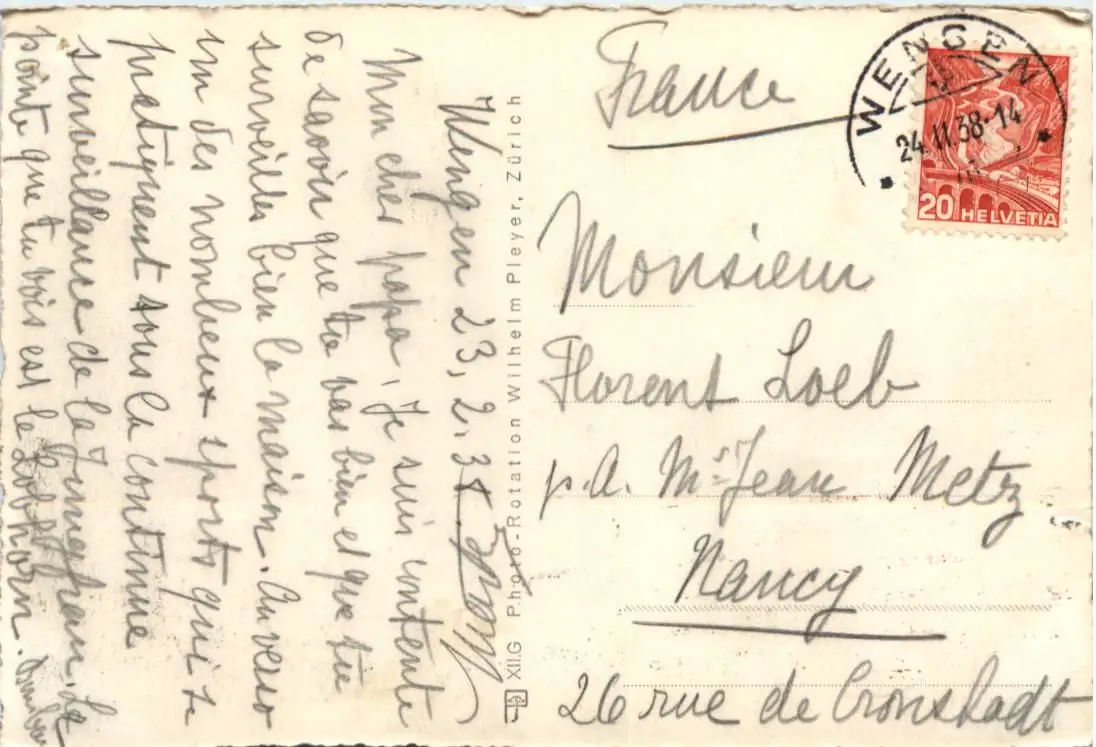 Wengen 23.2.38
Mon cher papa, Je suis contente
de savoir que tu vas bien et que tu
surveilles bien la maison. Au verso
un des nombreux sports qui se
pratiquent sous la continue
surveillance de la Jungfrau. La
pointe que tu vois est le Lobhorn.
XII.G Photo-Rotation Wilhelm Pleyer, Zürich
France
WENGEN
24.II.38-14
20 HELVETIA
Monsieur
Florent Loeb
p.a. Mr Jean Metz
Nancy
26 rue de Cronstadt